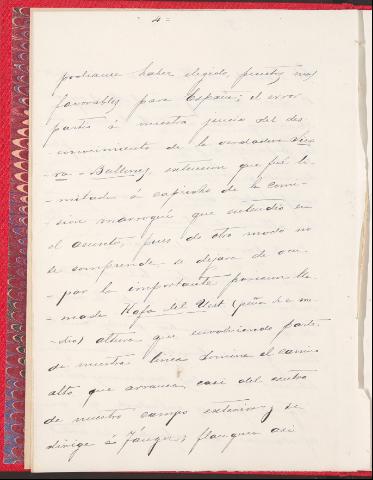 4 =
podianse haber elegido, puestos mas
favorables para España; el error
partió á nuestro juicio del des
conocimiento de la verdadera Sier
-ra-Bullones, extension que fué li-
-mitada á capricho de la comi-
-sion marroquí que entendió en
el asunto, pues de otro modo no
se comprende se dejara de ocu-
-par la importante posicion lla-
-mada Kafa del Uest (peña de
-dio) altura que envolviendo parte
de nuestra linea domina el camino
alto que arranca casi del centro
de nuestro campo exterior y se
dirige á Tánger, flanquea asi